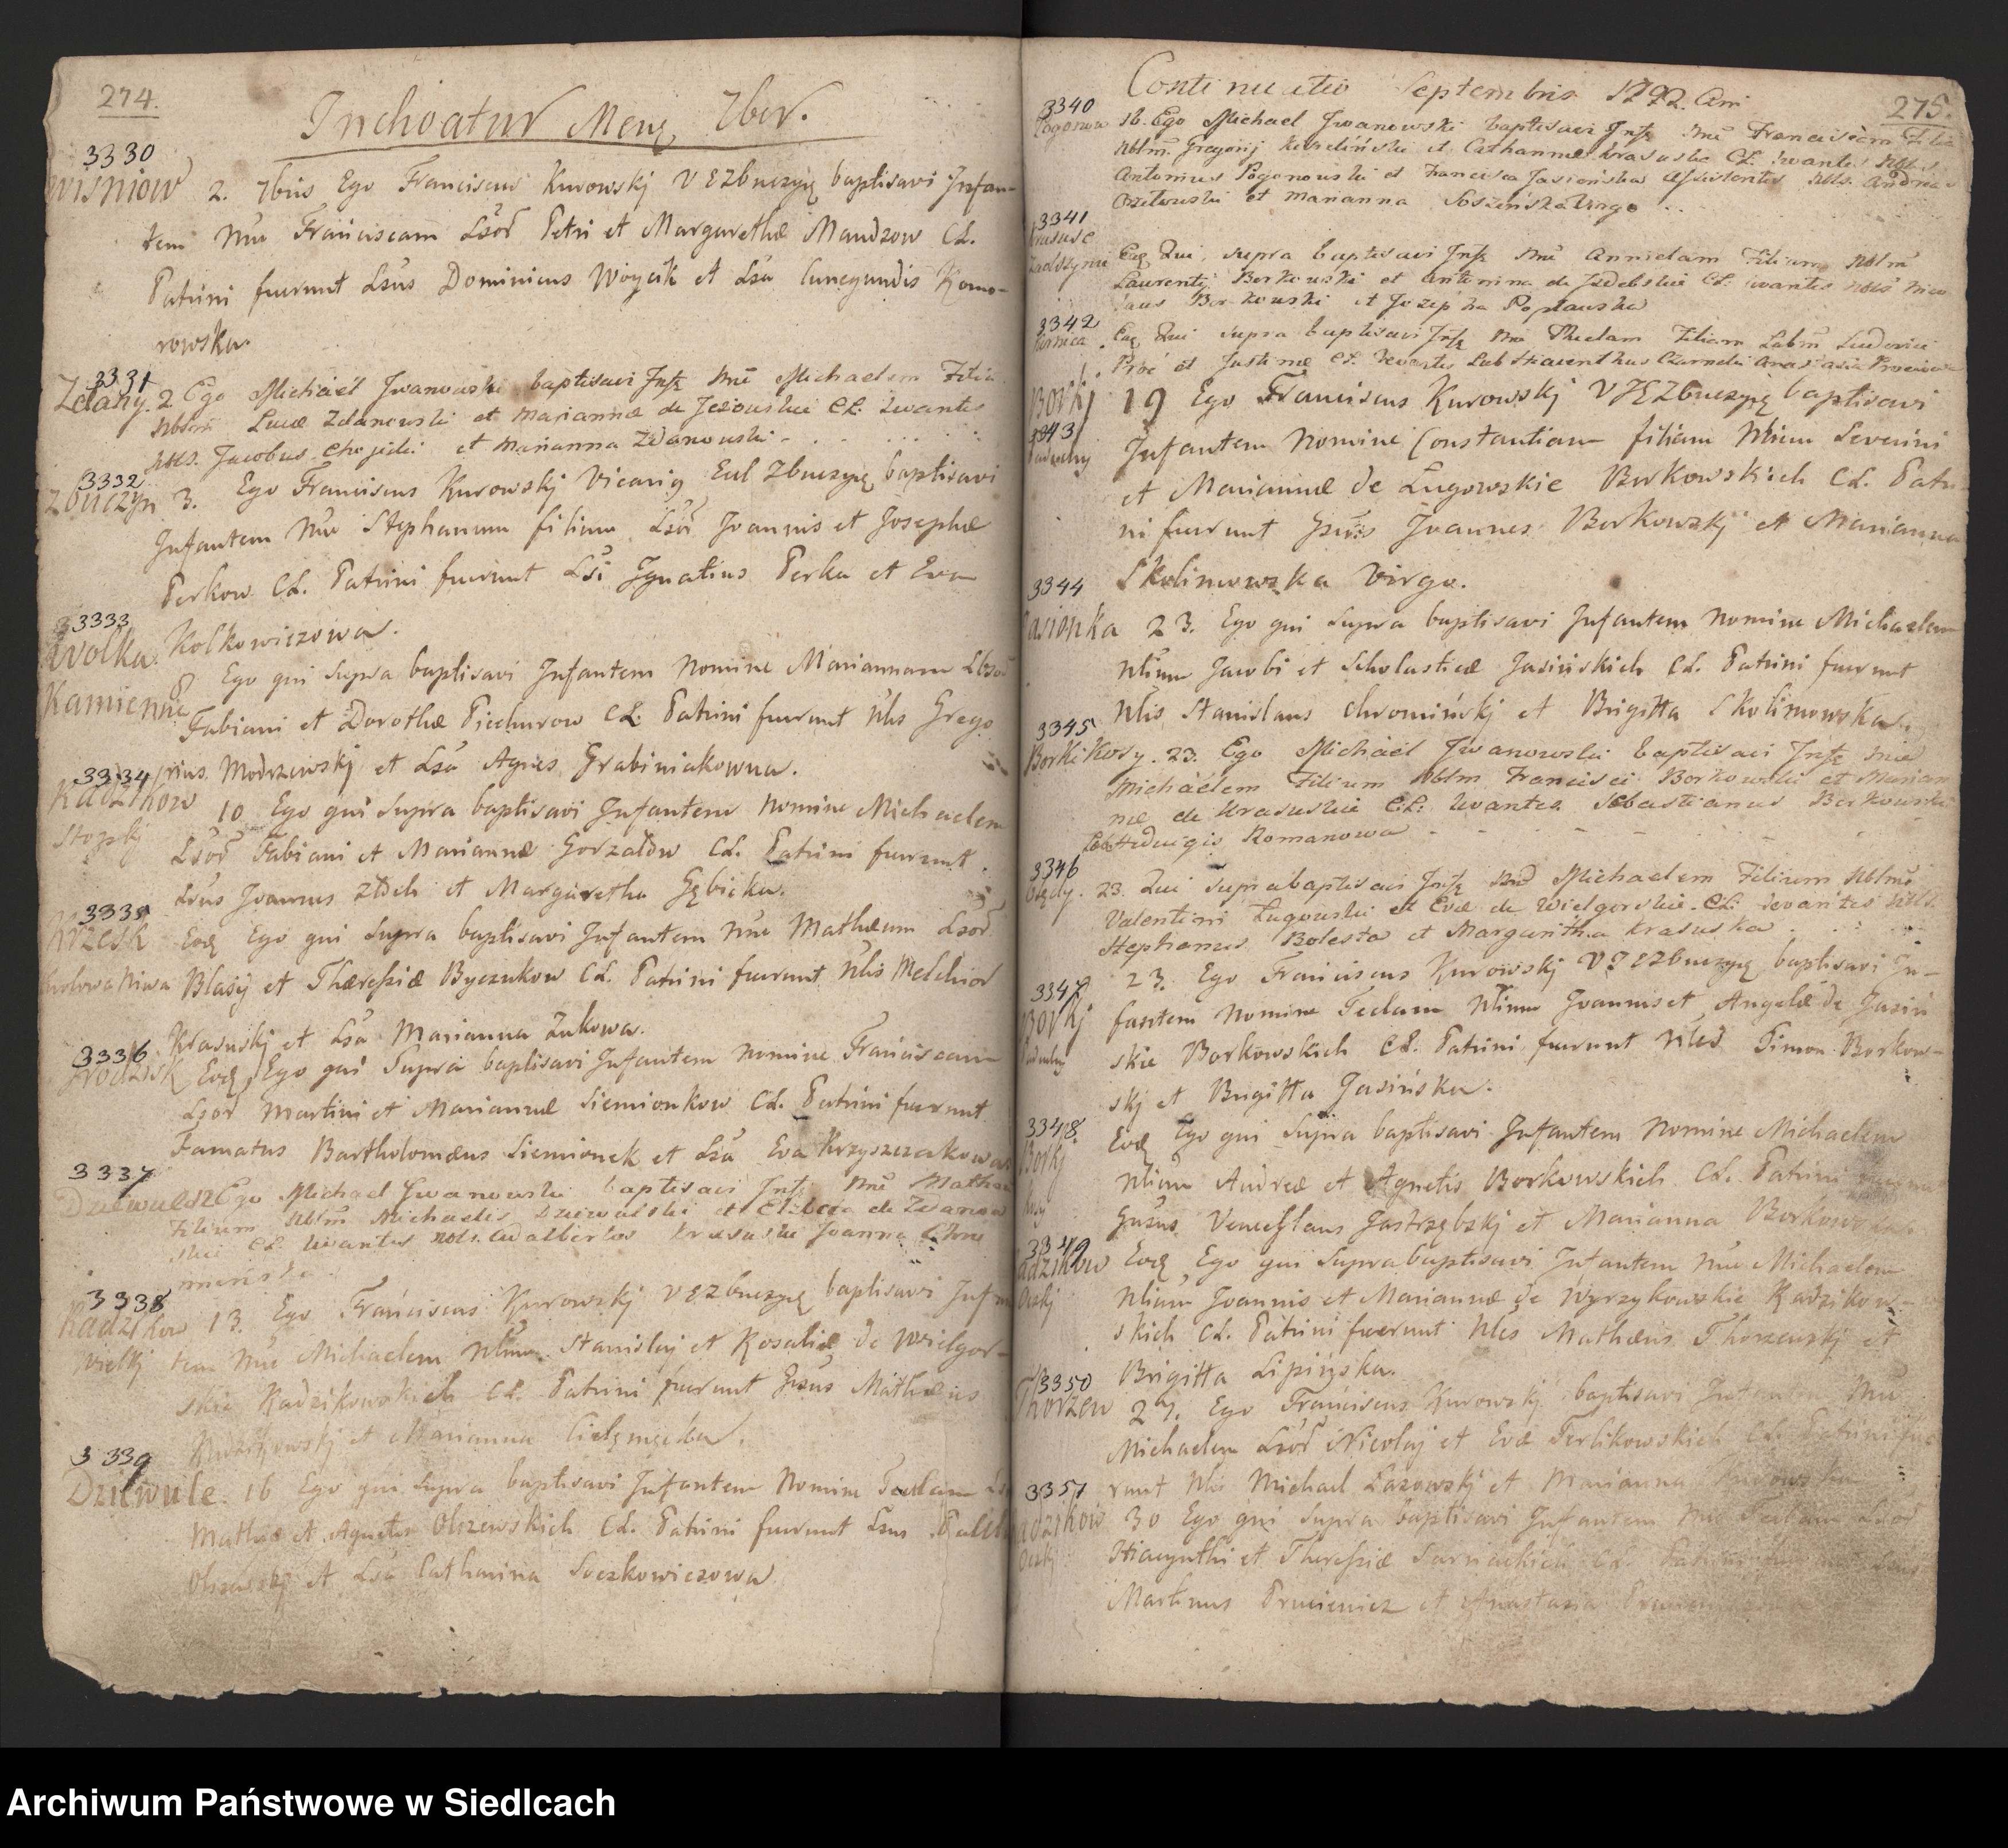 274.
Inchoatur Mens 7ber.
3330
Wisniow 2. 7bris Ego Franciscus Kurowskj V E Zbuczyn baptisavi Infan-
tem Nne Franciscam Lsor Petri et Margarethæ Mandzow CL.
Patrini fuerunt Lsus Dominicus Woycik et Lsa Cunegundis Komo-
rowska.
3331
Zdany. 2 Ego Michaël Jwanowski baptisavi Inft Nne Michaelem Filiu
Nblm Lucæ Zdanowski et Mariannæ de Jezowskie CL: Levantes
Nbls. Jacobus Chojecki et Marianna Zdanowski
3332
Zbuczyn 3. Ego Franciscus Kurowskj Vicarig Eccl Zbuczyn baptisavi
Infantem Nne Stephanum filium Lsor Joannis et Josephæ
Perkow CL. Patrini fuerunt Lsi Ignatius Perka et Eva
Kolkowiczowa.
3333
Wolka Kamienna 8 Ego qui Supra baptisavi Infantem Nomine Mariannam Lbso
Fabiani et Dorothæ Piechurow CL. Patrini fuerunt Nlis Grego
rius Modrzewskj et Lsa Agnes Grabiniakowna.
3334
Radzikow Stopkj 10 Ego qui Supra baptisavi Infantem Nomine Michaelem
Lsor Fabiani et Mariannæ Gorzałow CL. Patrini fuerunt
Lsus Joannes Zdch et Margaretha Gębicka.
3335
Krzesk Krolowa Niwa Eod Ego qui Supra baptisavi Infantem Nne Mathæum Lsor
Blasij et Theresiæ Byczukow CL. Patrini fuerunt Nlis Melchior
Krasuskj et Lsa Marianna Zukowa.
3336
Grodzisk Eod Ego qui Supra baptisavi Infantem Nomine Franciscam
Lsor Martini et Mariannæ Siemionkow CL. Patrini fuerunt
Famatus Bartholomæus Siemionek et Lsa Eva Krzyszczakowa
3337
Dziewule 12 Ego Michael Jwanowski baptisavi Inft Nne Mathæ
Filium Nblm Michaelis Dziewulski et de Zdanow
ski CL Levantes Nbls. Adalbertus Krasuski Joanna Chro
mieńska
3338
Radzikow Wielkj 13. Ego Franciscus Kurowskj V E Zbuczyn baptisavi Infan
tem Nne Michaelem Nlium Stanislaj et Rosaliæ de Wielgor-
skie Radzikowskich CL. Patrini fuerunt Gsus Mathæus
Radzikowskj et Marianna Cielęmęcka.
3339
Dziewule. 16 Ego qui Supra baptisavi Infantem Nomine Teclam Ls
Mathiæ et Agnetis Olszewskich CL. Patrini fuerunt Lsus
Olszewskj et Lsa Catharina Soczkowiczowa
275.
Continuatio Septembris 1792. Ani
3340
Pogonow 16. Ego Michael Jwanowski baptisavi Inft Nne Franciscam Filia
Nblm. Gregorij et Catharinæ Krasuska CL. Levantes Nbls
Antonius Pogonowski et Francisca Jasieńska Assistentes Nbls. Andreas
Czetowski et Marianna Sosieńska Virgo
3341
Krasusc Zadszynie Eod Qui supra baptisavi Inft Nne Annielam Filiam Nblm
Laurentij Borkowski et Antonina de Izdebskie CL: Levantes Nbls Nico
laus Borkowski et Jozepha Popławska
3342
Eod Qui supra baptisavi Inft Nne Theclam Filiam Labm Ludovici
Proć et Justinæ CL. Levantes Lab Hiacenthus Czarneki Anastasia Prociowa
Borkj 3343 19 Ego Franciscus Kurowskj V E Zbuczyn baptisavi
Infantem Nomine Constantiam filiam Nlium Severini
et Mariannæ de Lugowskie Borkowskich CL. Patri
ni fuerunt Gsus Joannes Borkowskj et Marianna
Skolimowska Virgo.
3344
Jasionka 23. Ego qui Supra baptisavi Infantem Nomine Michaelem
Nlium Jacobi et Scholasticæ Jasińskich CL. Patrini fuerunt
Nlis Stanislaus Chromińskj et Brigitta Skolimowska.
3345
Borki Kosy. 23. Ego Michaël Jwanowski baptisavi Inft Nne
Michaëlem Filium Nblm Francisci Borkowski et Marian
næ de Krasuskie CL: Levantes Sebastianus Borkowski
Hedwigis Romanowa
3346
23. Qui supra baptisavi Inft Nne Michaelem Filium Nblm
Valentini Ługowski et Evæ de Wielgorskie. CL: Levantes Nbls.
Stephanus Bolesta et Margaritha Krasuska
3347
Borkj 23. Ego Franciscus Kurowskj V E Zbuczyn baptisavi In-
fantem Nomine Teclam Nlium Joannis et Angelæ de Jasiń
skie Borkowskich CL. Patrini fuerunt Nles Simon Borkow-
skj et Brigitta Jasińska.
3348
Borkj Kosy Eod Ego qui Supra baptisavi Infantem Nomine Michaelem
Nlium Andreæ et Agnetis Borkowskich CL. Patrini
Gsus Venceslaus Jastrzębskj et Marianna Borkowska
3349
Radzikow Oczkj Eod Ego qui Supra baptisavi Infantem Nne Michaelem
Nlium Joannis et Mariannæ de Wyrzykowskie Radzikow-
skich CL. Patrini fuerunt Nlis Mathæus Thorzewskj et
Brigitta Lipińska.
3350
Thorzew 29. Ego Franciscus Kurowskj baptisavi Infantem Nne
Michaelem Lsor Nicolaj et Evæ Terlikowskich CL. Patrini fue
runt Nlis Michael Lazowskj et Marianna
3351
Radzikow Oczkj 30 Ego qui Supra baptisavi Infantem Nne Teclam Lsor
Hiacynthi et Theresiæ Sarnackich CL. Patrini fuerunt Lsus
Martinus Prucieniez et Anastazia
Archiwum Państwowe w Siedlcach